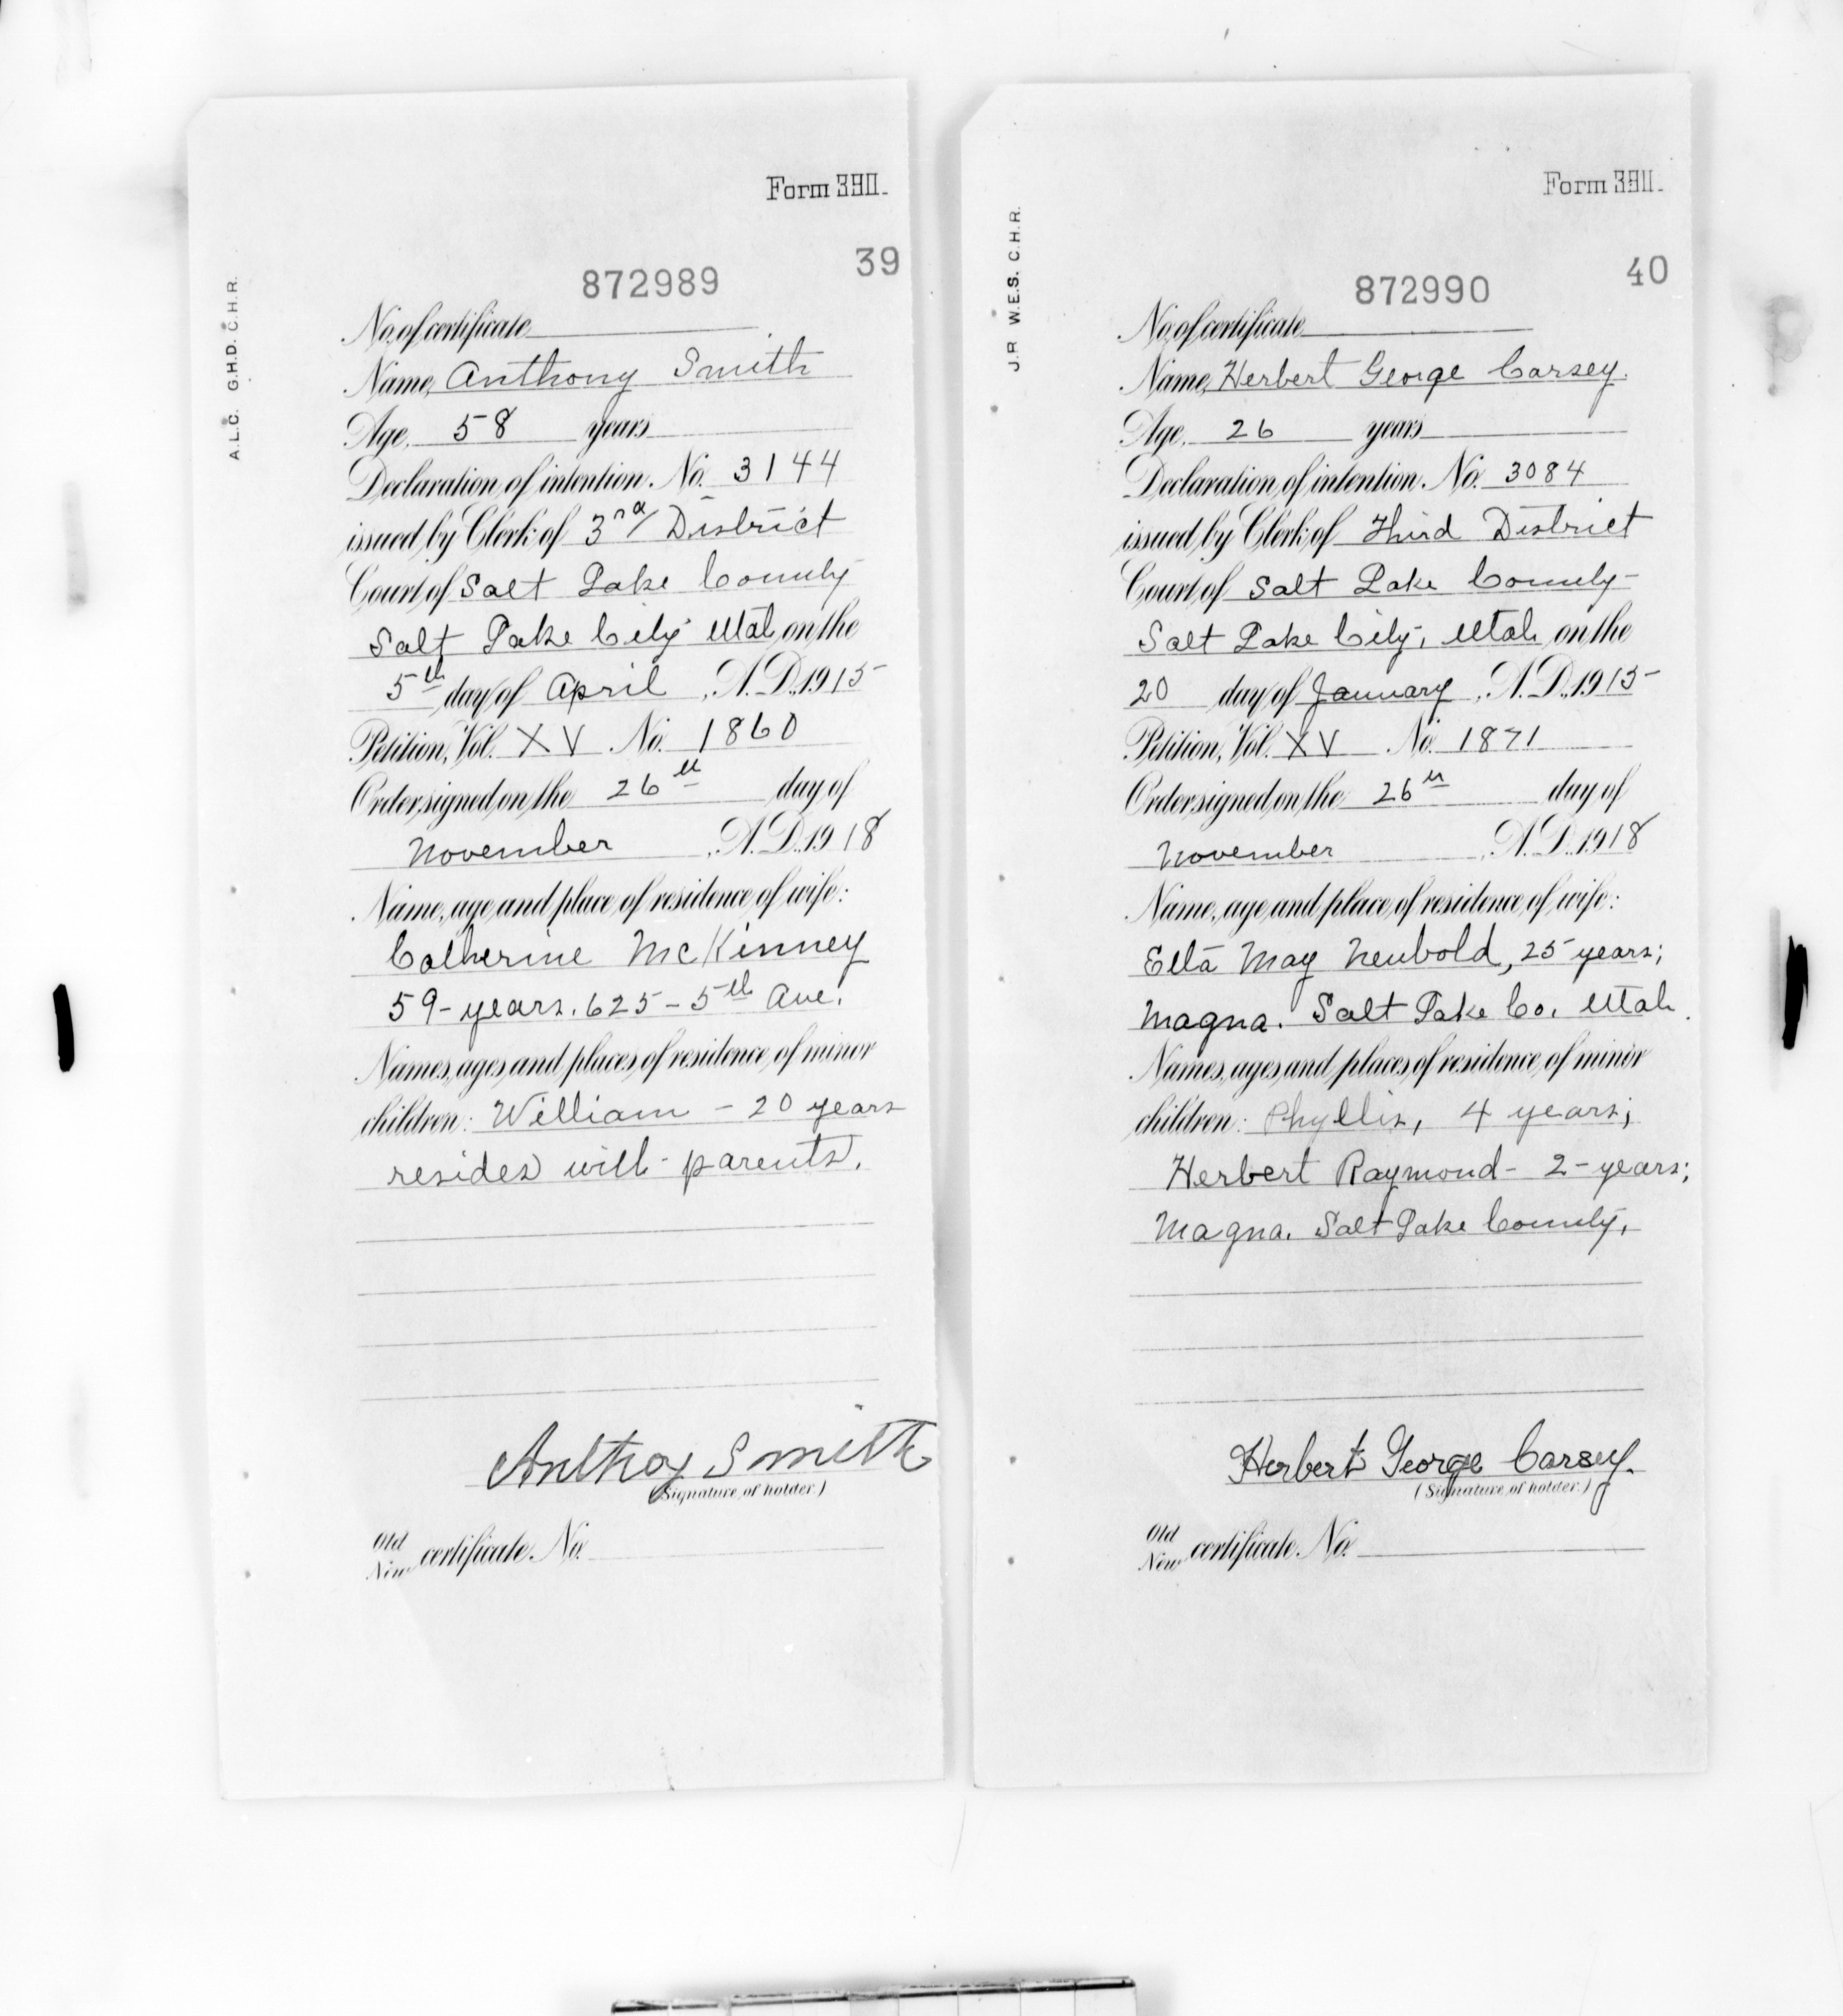 Form 39II.
39
872989
A.L.C. G.H.D. C.H.R.
No. of certificate
Name, Anthony Smith
Age, 58 years
Declaration of intention No. 3144
issued by Clerk of 3rd District
Court of Salt Lake County
Salt Lake City Utah on the
5th day of April, A.D. 1915
Petition, Vol. XV No. 1860
Order signed on the 26th day of
November, A.D. 1918
Name, age and place of residence of wife:
Catherine McKinney
59-years. 625-5th Ave.
Names, ages and places of residence of minor
children: William - 20 years
resides with parents.
Anthoy Smith
(Signature of holder.)
Old
New certificate No.
Form 39II.
40
872990
J.R W.E.S. C.H.R.
No. of certificate
Name, Herbert George Carsey.
Age, 26 years
Declaration of intention No. 3084
issued by Clerk of Third District
Court of Salt Lake County
Salt Lake City, Utah on the
20 day of January, A.D. 1915
Petition, Vol. XV No. 1871
Order signed on the 26th day of
November, A.D. 1918
Name, age and place of residence of wife:
Etta May Newbold, 25 years;
Magna. Salt Lake Co. Utah.
Names, ages and places of residence of minor
children: Phyllis, 4 years;
Herbert Raymond - 2-years;
Magna. Salt Lake County.
Herbert George Carsey.
(Signature of holder.)
Old
New certificate No.